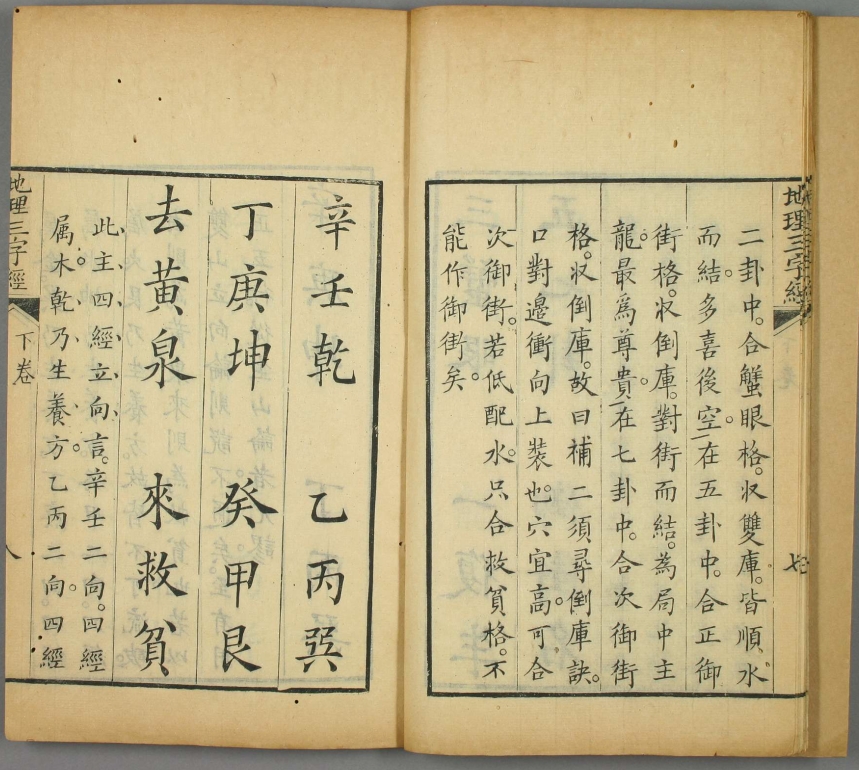 地理三字經
下卷
七
二卦中。合蟹眼格。収雙庫。皆順水
而結。多喜後空。一在五卦中。合正御
街格。収倒庫。對街而結。為局中主
龍。最為尊貴。一在七卦中。合次御街
格。収倒庫。故曰補二須尋倒庫訣。
口對邉衝向上裝也。穴宜高。可合
次御街。若低配水。只合救貧格。不
能作御街矣。
辛壬乾 乙丙巽
丁庚坤 癸甲艮
去黃泉 來救貧
此主四經立向言。辛壬二向。四經
属木。乾乃生養方。乙丙二向。四經
地理三字經
下卷
八